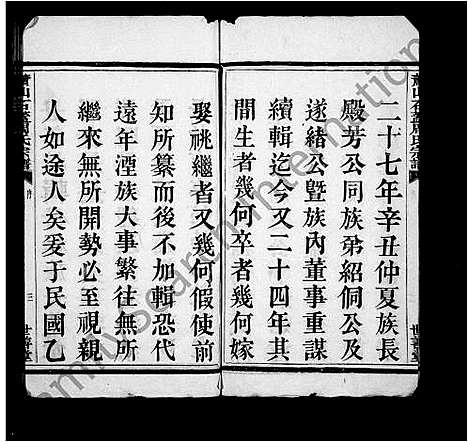 二十七年辛丑仲夏族長
殿芳公同族弟紹侗公及
遂緒公暨族內董事重謀
續輯迄今又二十四年其
間生者幾何卒者幾何嫁
娶祧繼者又幾何假使前
知所纂而後不加輯恐代
遠年湮族大事繁往無所
繼來無所開勢必至視親
人如途人矣爰于民國乙
蕭山石蓋周氏宗譜
序
三
世尋堂
Familysearch International